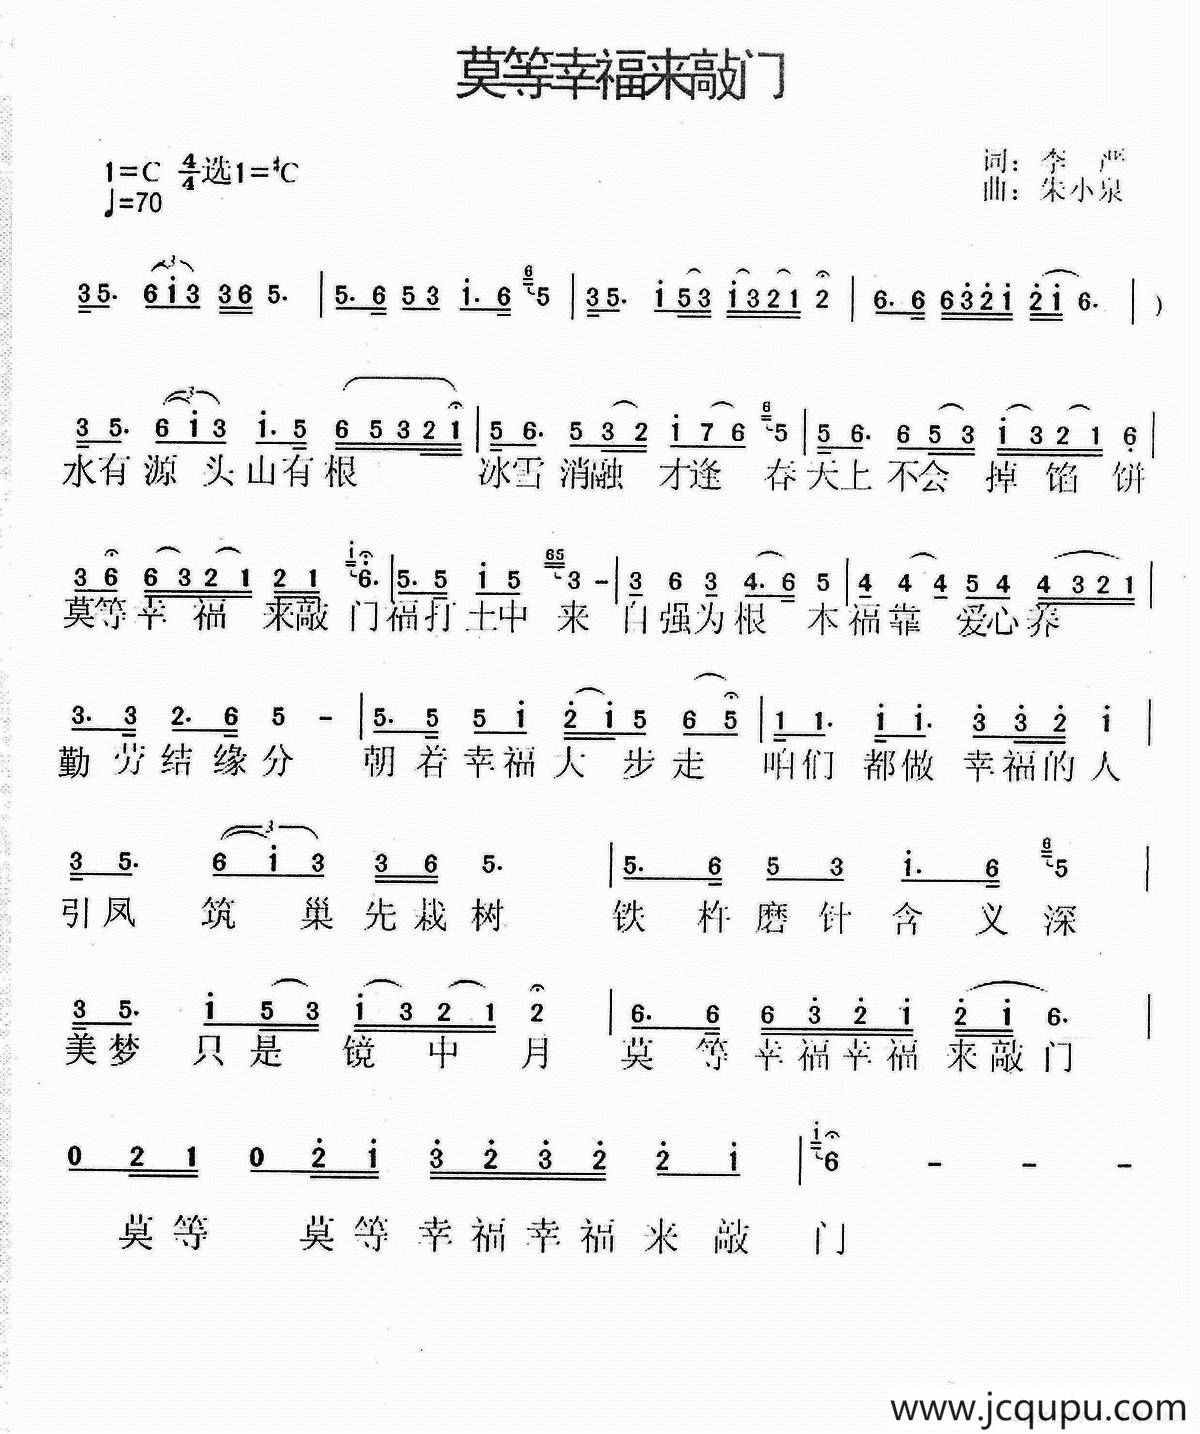 莫等幸福来敲门
1=C 4/4 选1=#C
♩=70
词：李 严
曲：朱小泉
35. 6i3 36 5. | 5.6 53 i.6 65 | 35. i53 i321 2 | 6.6 632i 2i 6. | )
3 5. 6 i 3 i. 5 6 5 3 2 1 | 5 6. 5 3 2 i 7 6 6 5 | 5 6. 6 5 3 i 3 2 1 6 |
水有 源 头山有根 冰雪 消融 才逢 春天上 不会 掉 馅 饼
3 6 6 3 2 1 2 1 i 6. | 5. 5 i 5 65 3 – | 3 6 3 4. 6 5 | 4 4 4 5 4 4 3 2 1 |
莫等 幸 福 来敲 门福打 土中 来 自强为根 本福靠 爱心养
3. 3 2. 6 5 – | 5. 5 5 i 2 i 5 6 5 | 1 1. i i. 3 3 2 i |
勤 劳 结 缘 分 朝 着 幸 福 大 步 走 咱们 都做 幸福的人
3 5. 6 i 3 3 6 5. | 5. 6 5 3 i. 6 6 5 |
引凤 筑 巢 先 栽 树 铁 杵 磨 针 含 义 深
3 5. i 5 3 i 3 2 1 2 | 6. 6 6 3 2 i 2 i 6. |
美梦 只是 镜 中 月 莫 等 幸福幸福 来敲门
0 2 1 0 2 i 3 2 3 2 2 i | i 6 – – –
莫等 莫等幸福幸福来敲 门
www.jcqupu.com